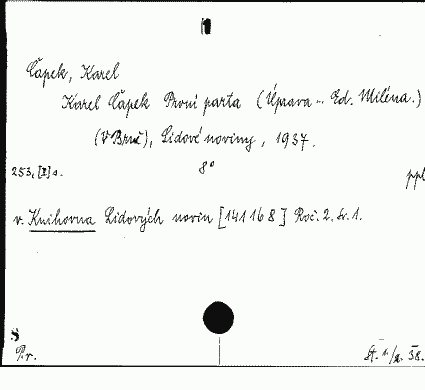 Čapek, Karel
Karel Čapek První parta (Úprava - Ed. Miléna.)
(V Brně), Lidové noviny, 1937.
253, [I] s. 8° ppl
v. Knihovna Lidových novin [141168] Roč. 2. Sv. 1.
8
Pr. St. 1./38.